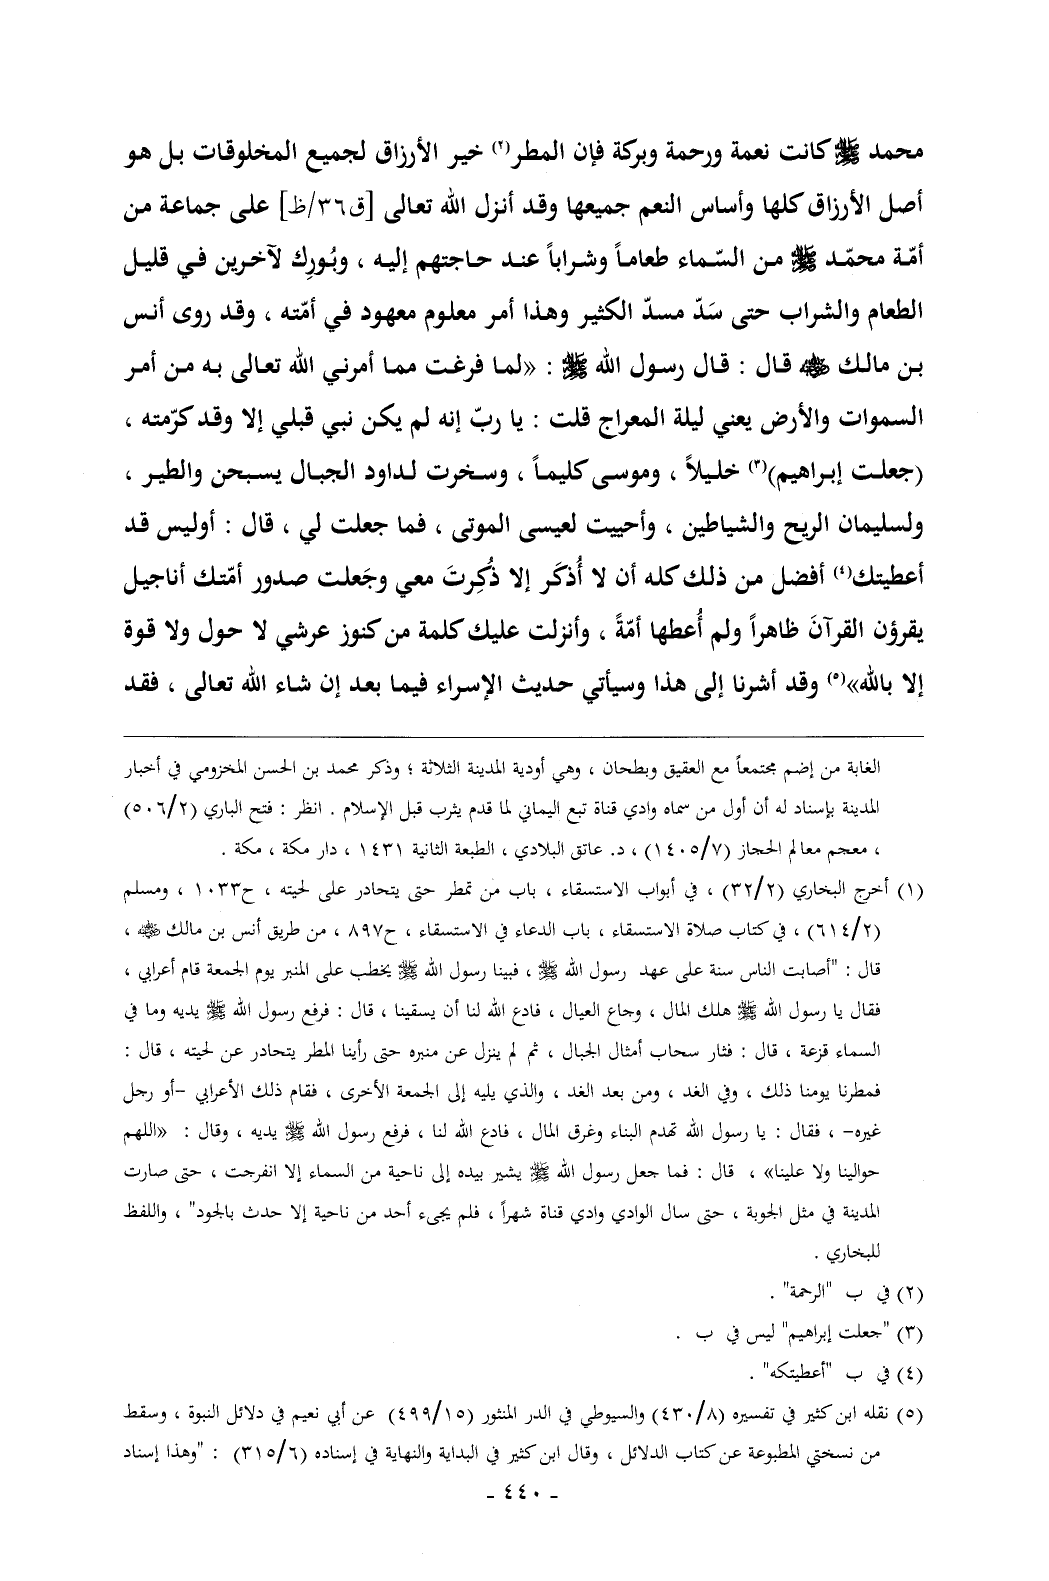 محمد ﷺ كانت نعمة ورحمة وبركة فإن المطر(٢) خير الأرزاق لجميع المخلوقات بل هو
أصل الأرزاق كلها وأساس النعم جميعها وقد أنزل الله تعالى [ق٣٦/ظ] على جماعة من
أمّة محمّد ﷺ من السّماء طعاماً وشراباً عند حاجتهم إليه ، وبُورِك لآخرين في قليل
الطعام والشراب حتى سَدّ مسدّ الكثير وهذا أمر معلوم معهود في أمّته ، وقد روى أنس
بن مالك رضي الله عنه قال : قال رسول الله ﷺ : «لما فرغت مما أمرني الله تعالى به من أمر
السموات والأرض يعني ليلة المعراج قلت : يا ربّ إنه لم يكن نبي قبلي إلا وقد كرّمته ،
(جعلت إبراهيم)(٣) خليلاً ، وموسى كليماً ، وسخرت لداود الجبال يسبحن والطير ،
ولسليمان الريح والشياطين ، وأحييت لعيسى الموتى ، فما جعلت لي ، قال : أوليس قد
أعطيتك(٤) أفضل من ذلك كله أن لا أُذكَر إلا ذُكِرتَ معي وجَعلت صدور أمّتك أناجيل
يقرؤن القرآنَ ظاهراً ولم أُعطها أمّةً ، وأنزلت عليك كلمة من كنوز عرشي لا حول ولا قوة
إلا بالله»(٥) وقد أشرنا إلى هذا وسيأتي حديث الإسراء فيما بعد إن شاء الله تعالى ، فقد
الغابة من إضم مجتمعاً مع العقيق وبطحان ، وهي أودية المدينة الثلاثة ؛ وذكر محمد بن الحسن المخزومي في أخبار
المدينة بإسناد له أن أول من سماه وادي قناة تبع اليماني لما قدم يثرب قبل الإسلام . انظر : فتح الباري (٥٠٦/٢)
، معجم معالم الحجاز (١٤٠٥/٧) ، د. عاتق البلادي ، الطبعة الثانية ١٤٣١ ، دار مكة ، مكة .
(١) أخرج البخاري (٣٢/٢) ، في أبواب الاستسقاء ، باب من تمطر حتى يتحادر على لحيته ، ح١٠٣٣ ، ومسلم
(٦١٤/٢) ، في كتاب صلاة الاستسقاء ، باب الدعاء في الاستسقاء ، ح٨٩٧ ، من طريق أنس بن مالك رضي الله عنه ،
قال : "أصابت الناس سنة على عهد رسول الله ﷺ ، فبينا رسول الله ﷺ يخطب على المنبر يوم الجمعة قام أعرابي ،
فقال يا رسول الله ﷺ هلك المال ، وجاع العيال ، فادع الله لنا أن يسقينا ، قال : فرفع رسول الله ﷺ يديه وما في
السماء قزعة ، قال : فثار سحاب أمثال الجبال ، ثم لم ينزل عن منبره حتى رأينا المطر يتحادر عن لحيته ، قال :
فمطرنا يومنا ذلك ، وفي الغد ، ومن بعد الغد ، والذي يليه إلى الجمعة الأخرى ، فقام ذلك الأعرابي -أو رجل
غيره- ، فقال : يا رسول الله تهدم البناء وغرق المال ، فادع الله لنا ، فرفع رسول الله ﷺ يديه ، وقال : «اللهم
حوالينا ولا علينا» ، قال : فما جعل رسول الله ﷺ يشير بيده إلى ناحية من السماء إلا انفرجت ، حتى صارت
المدينة في مثل الجوبة ، حتى سال الوادي وادي قناة شهراً ، فلم يجىء أحد من ناحية إلا حدث بالجود" ، واللفظ
للبخاري .
(٢) في ب "الرحمة" .
(٣) "جعلت إبراهيم" ليس في ب .
(٤) في ب "أعطيتكه" .
(٥) نقله ابن كثير في تفسيره (٤٣٠/٨) والسيوطي في الدر المنثور (٤٩٩/١٥) عن أبي نعيم في دلائل النبوة ، وسقط
من نسختي المطبوعة عن كتاب الدلائل ، وقال ابن كثير في البداية والنهاية في إسناده (٣١٥/٦) : "وهذا إسناد
- ٤٤٠ -